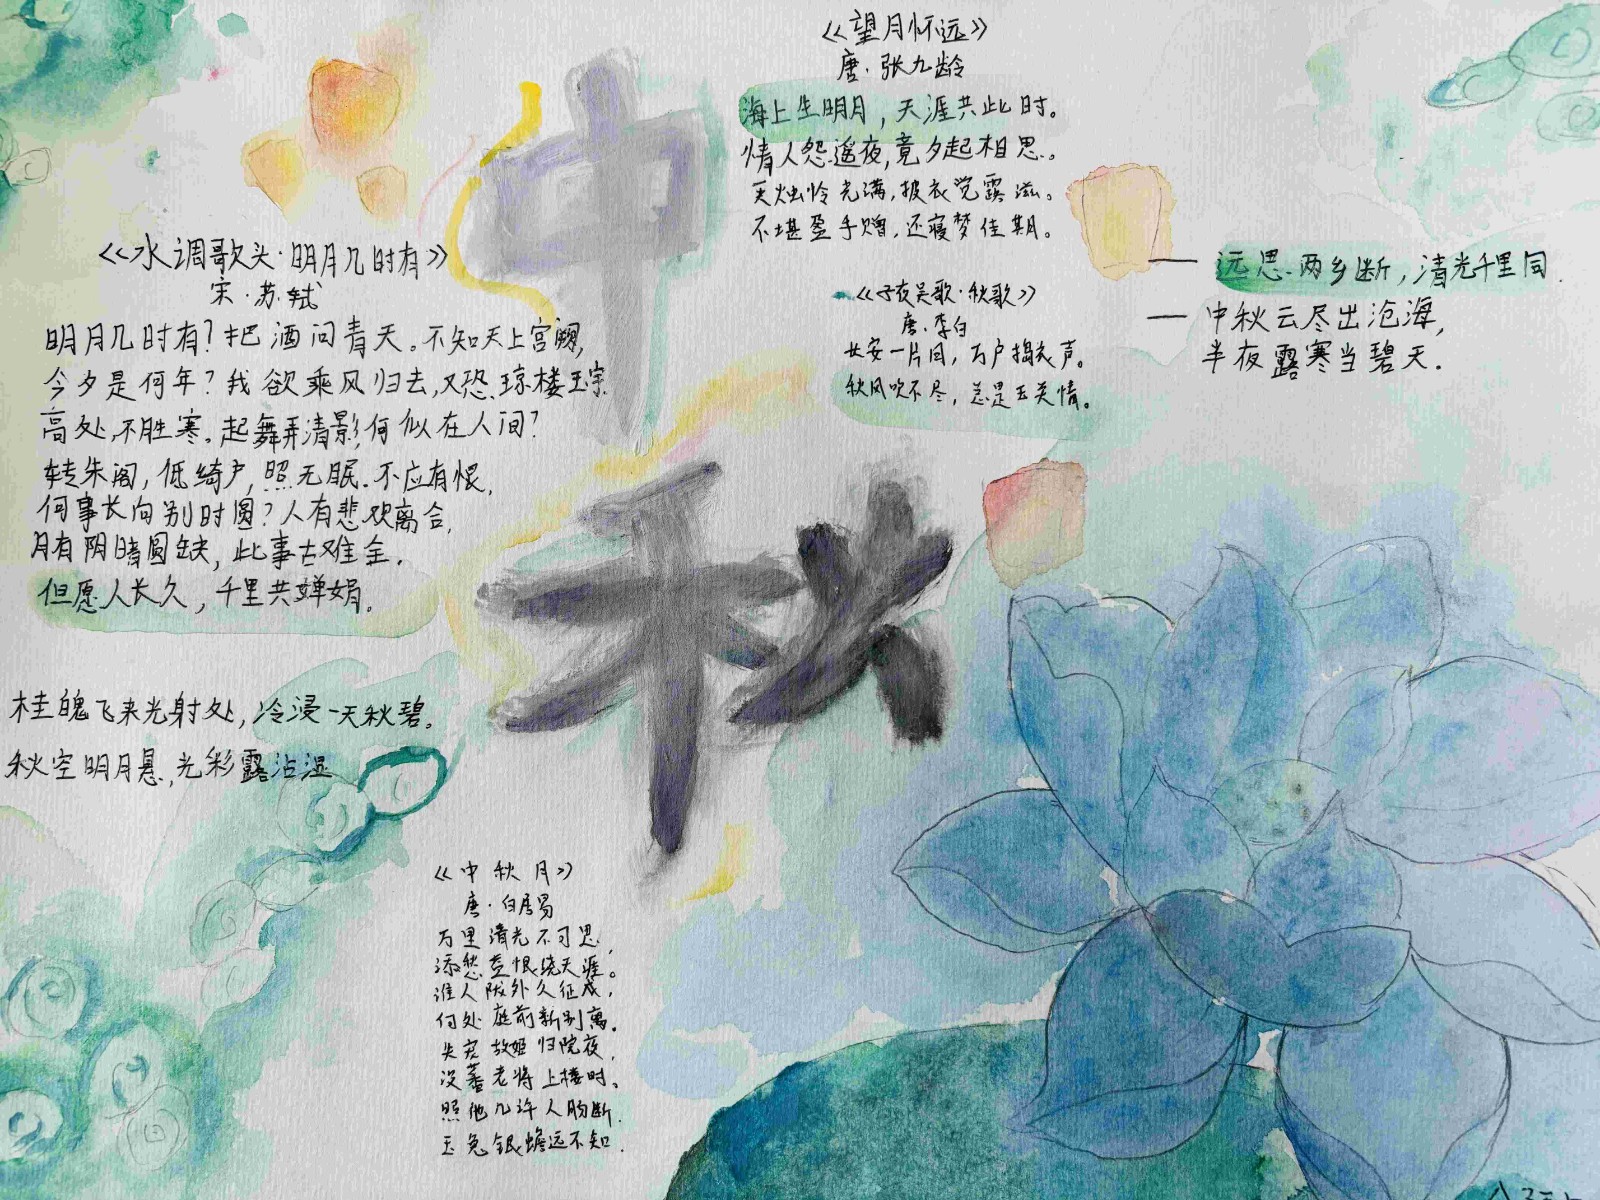 中
秋
《水调歌头·明月几时有》
宋·苏·轼
明月几时有？把酒问青天。不知天上宫阙,
今夕是何年？我欲乘风归去,又恐琼楼玉宇
高处,不胜寒。起舞弄清影,何似在人间?
转朱阁，低绮户,照无眠.不应有恨,
何事长向别时圆？人有悲欢离合,
月有阴晴圆缺，此事古难全.
但愿人长久，千里共婵娟。
桂魄飞来光射处，冷浸一天秋碧。
秋空明月悬,光彩露沾湿
《中秋月》
唐·白居易
万里清光不可思，
添愁益恨绕天涯。
谁人陇外久征戍，
何处庭前新别离。
失宠故姬归院夜，
没蕃老将上楼时。
照他几许人肠断.
玉兔银蟾远不知.
《望月怀远》
唐·张九龄
海上生明月，天涯共此时。
情人怨遥夜,竟夕起相思。
灭烛怜光满,披衣觉露滋。
不堪盈手赠,还寝梦佳期。
《子夜吴歌·秋歌》
唐·李白
长安一片月，万户捣衣声。
秋风吹不尽，总是玉关情。
— 远思两乡断，清光千里同
— 中秋云尽出沧海,
半夜露寒当碧天.